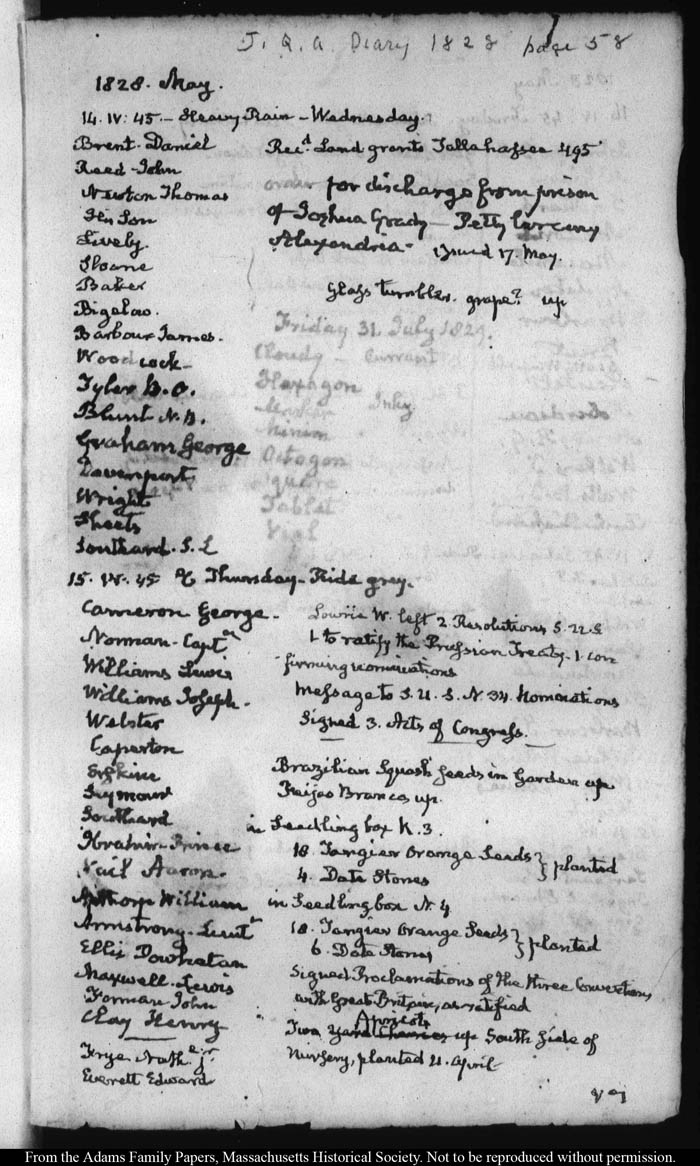 J. Q. A. Diary 1828 page 58
1828. May.
14. IV: 45 - Heavy Rain - Wednesday.
Brent. Daniel
Reed - John
Newton Thomas
His Son
Lively.
Sloane
Baker
Bigelow.
Barbour James.
Woodcock -
Tyler
Blunt N. B.
Graham George
Davenport
Wright
Sheets
Southard. S. L
Recd. Land grants Tallahassee 495
order for discharge from prison
of Joshua Grady - Petty larceny
Alexandria - issued 17. May.
Glass tumbler. grape? up
Friday 31. July 1829.
Cloudy - Currant
Hexagon
Inky
Minim
Octogon
Square
Tablet
Vial
15. IV. 45 Thursday - Ride grey.
Cameron George -
Norman - Captn
Williams Lewis
Williams Joseph -
Webster
Caperton
Erskine
Seymour
Southard
Ibrahim - Prince
Vail Aaron -
Apthorp William
Armstrong - Lieut
Ellis Powhatan
Maxwell - Lewis
Forman John
Clay Henry
Frye Nathl. jr.
Everett Edward
Lowrie W. left 2 Resolutions S. U. S
1 to ratify the Prussian Treaty - 1. con
firming nominations
Message to S. U. S. N. 34. Nominations
Signed 3. Acts of Congress.
Brazilian Squash seeds in Garden up
Feijao Branco up.
in Seedling box N. 3.
18. Tangier Orange Seeds } planted
4. Date Stones
in Seedling box N. 4
18. Tangier Orange Seeds } planted
6. Date Stones
Signed Proclamations of the three Conventions,
with Great Britain, as ratified
Apricots
Two yard Cherries up South side of
Nursery, planted 21. April
From the Adams Family Papers, Massachusetts Historical Society. Not to be reproduced without permission.